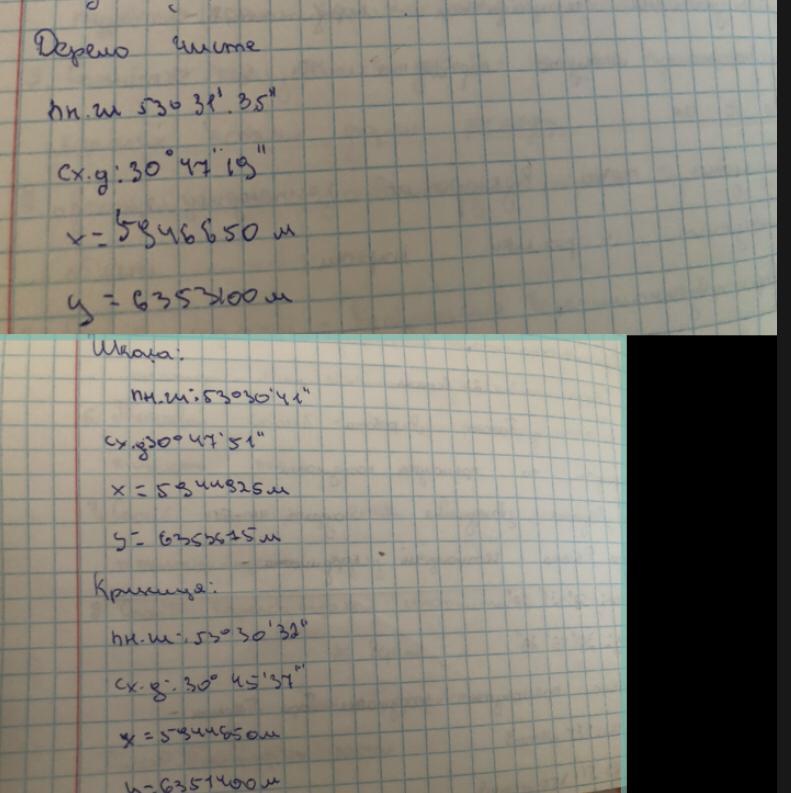 Джерело Чисте
пн.ш 53° 31'. 35"
сх.д: 30° 47'' 19"
x = 5946650 м
y = 6353100 м
Школа:
пн.ш: 53°30'41"
сх.д30° 47'51"
x = 5944925м
y = 6353675м
Криниця:
пн.ш: 53°30'32"
сх.д: 30° 45'37"
x = 5944650м
y=6351400м